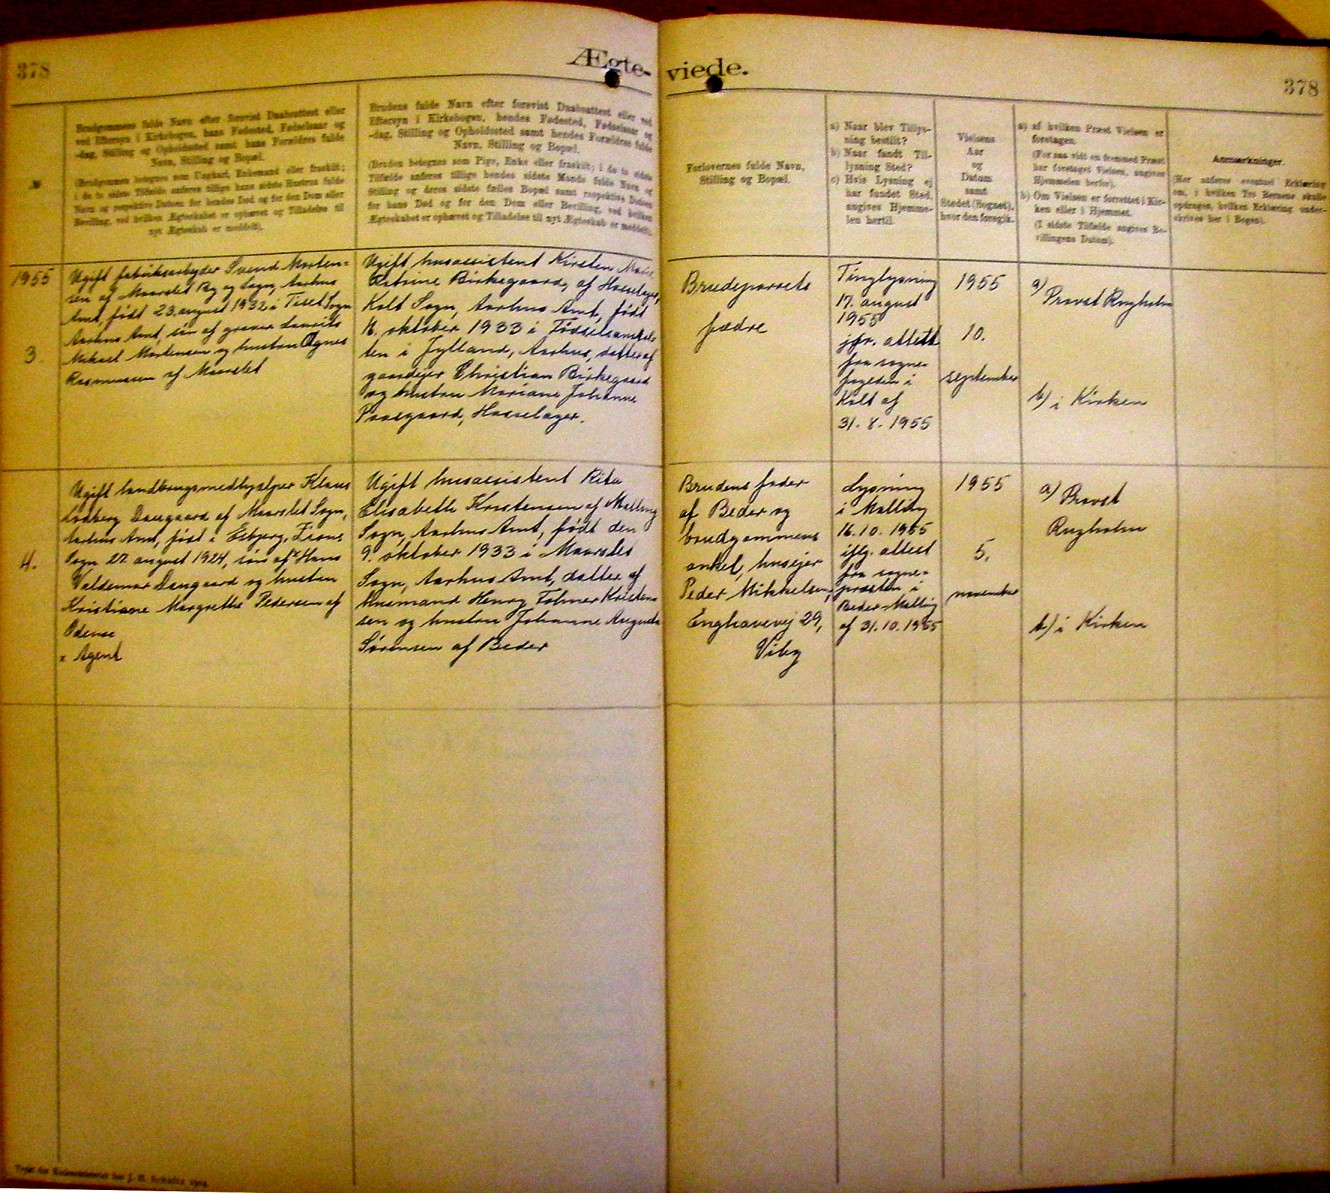 378
Ægte-
viede.
378
№
Brudgommens fulde Navn efter forevist Daabsattest eller
ved Eftersyn i Kirkebogen, hans Fødested, Fødselsaar og
-dag, Stilling og Opholdssted samt hans Forældres fulde
Navn, Stilling og Bopæl.
(Brudgommen betegnes som Ungkarl, Enkemand eller fraskilt;
i de to sidste Tilfælde anføres tillige hans sidste Hustrus fulde
Navn og respektive Datoen for hendes Død og for den Dom eller
Bevilling, ved hvilken Ægteskabet er ophævet og Tilladelse til
nyt Ægteskab er meddelt).
Brudens fulde Navn efter forevist Daabsattest eller ved
Eftersyn i Kirkebogen, hendes Fødested, Fødselsaar og
-dag, Stilling og Opholdssted samt hendes Forældres fulde
Navn, Stilling og Bopæl.
(Bruden betegnes som Pige, Enke eller fraskilt; i de to sidste
Tilfælde anføres tillige hendes sidste Mands fulde Navn og
Stilling og deres sidste fælles Bopæl samt respektive Datoen
for hans Død og for den Dom eller Bevilling, ved hvilken
Ægteskabet er ophævet og Tilladelse til nyt Ægteskab er meddelt).
Forlovernes fulde Navn,
Stilling og Bopæl.
a) Naar blev Tillys-
ning bestilt?
b) Naar fandt Til-
lysning Sted?
c) Hvis Lysning ej
har fundet Sted,
angives Hjemme-
len hertil.
Vielsens
Aar
og
Datum
samt
Stedet (Sognet),
hvor den foregik.
a) af hvilken Præst Vielsen er
foretagen.
(For saa vidt en fremmed Præst
har foretaget Vielsen, angives
Hjemmelen herfor).
b) Om Vielsen er forrettet i Kir-
ken eller i Hjemmet.
(I sidste Tilfælde angives Be-
villingens Datum).
Anmærkninger.
(Her anføres eventuel Erklæring
om, i hvilken Tro Børnene skulle
opdrages, hvilken Erklæring under-
skrives her i Bogen).
1955
3.
Ugift fabriksarbejder Svend Morten-
sen af Maarslet By og Sogn, Aarhus
Amt, født 23. august 1932 i Tiset Sogn
Aarhus Amt, søn af graver
Mikael Mortensen og hustru Agnes
Rasmussen af Maarslet
Ugift husassistent Kirsten Marie
Katrine Birkegaard, af Hasselager,
Kolt Sogn, Aarhus Amt, født
16. oktober 1933 i Fødselsanstal-
ten i Jylland, Aarhus, datter af
gaardejer Christian Birkegaard
og hustru Mariane Johanne
Paaegaard, Hasselager.
Brudeparrets
fædre
Tinglysning
17. august
1955
jfr. attest
fra sogne-
fogeden i
Kolt af
31. 8. 1955
1955
10.
september
a)
Provst Rugholm
b) i Kirken
4.
Ugift landbrugsmedhjælper Klaus
Lodberg Daugaard af Maarslet Sogn,
Aarhus Amt, født i Esbjerg, Zions
Sogn 27. august 1924, søn af x Hans
Valdemar Daugaard og hustru
Kristiane Margrethe Pedersen af
Odense
x Agent
Ugift husassistent Rita
Elisabeth Kristensen af Malling
Sogn, Aarhus Amt, født den
9. oktober 1933 i Maarslet
Sogn, Aarhus Amt, datter af
Husmand Henry Folmer Kristen-
sen og hustru Johanne Augusta
Sørensen af Beder
Brudens fader
af Beder og
brudgommens
onkel, husejer
Peder Mikkelsen,
Enghavevej 29,
Viby
Lysning
i Malling
16.10.1955
iflg. attest
fra sogne-
præsten i
Beder-Malling
af 31.10.1955
1955
5.
november
a) Provst
Rugholm
b) i Kirken
Trykt for Kirkeministeriet hos J. H. Schultz